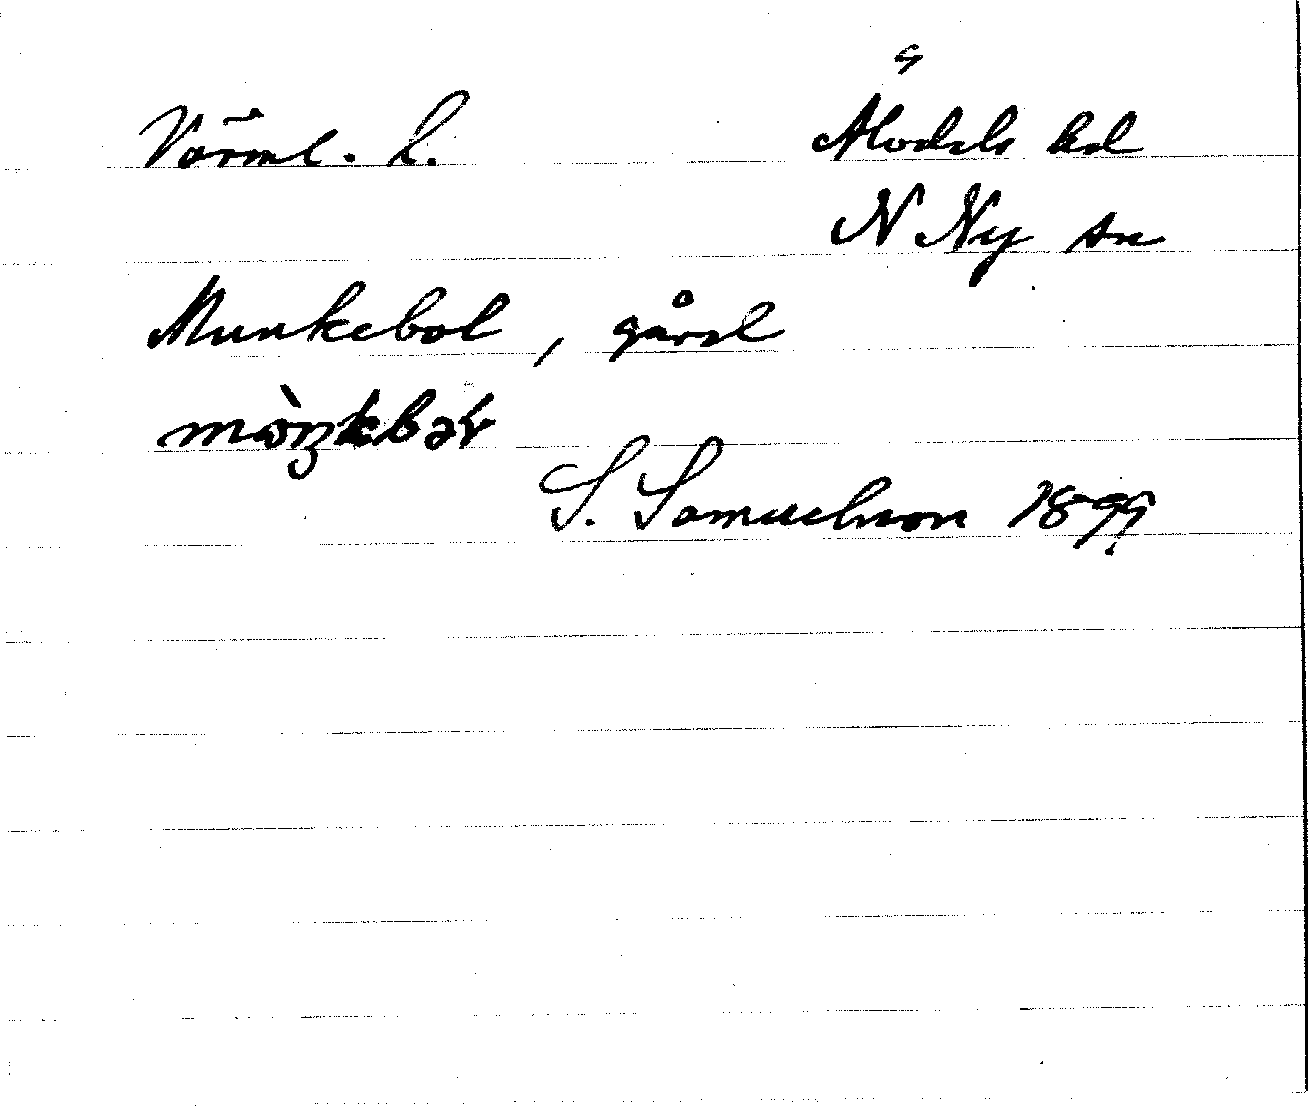 Värml. L. Älvdals hd
N Ny sn
Munkebol, gård
S. Samuelsson 1899